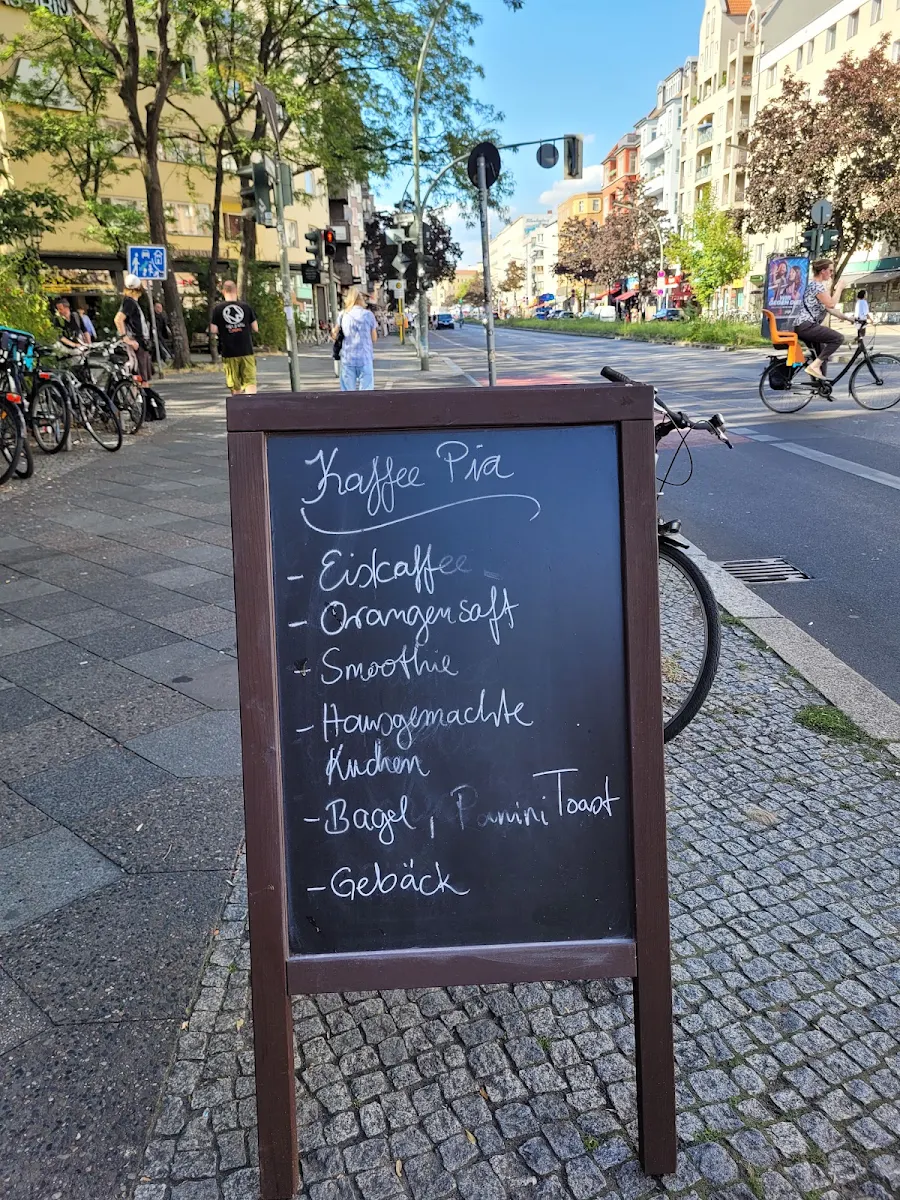 Kaffee Pia
- Eiskaffee
- Orangensaft
- Smoothie
- Hausgemachte
Kuchen
- Bagel, Panini Toast
- Gebäck